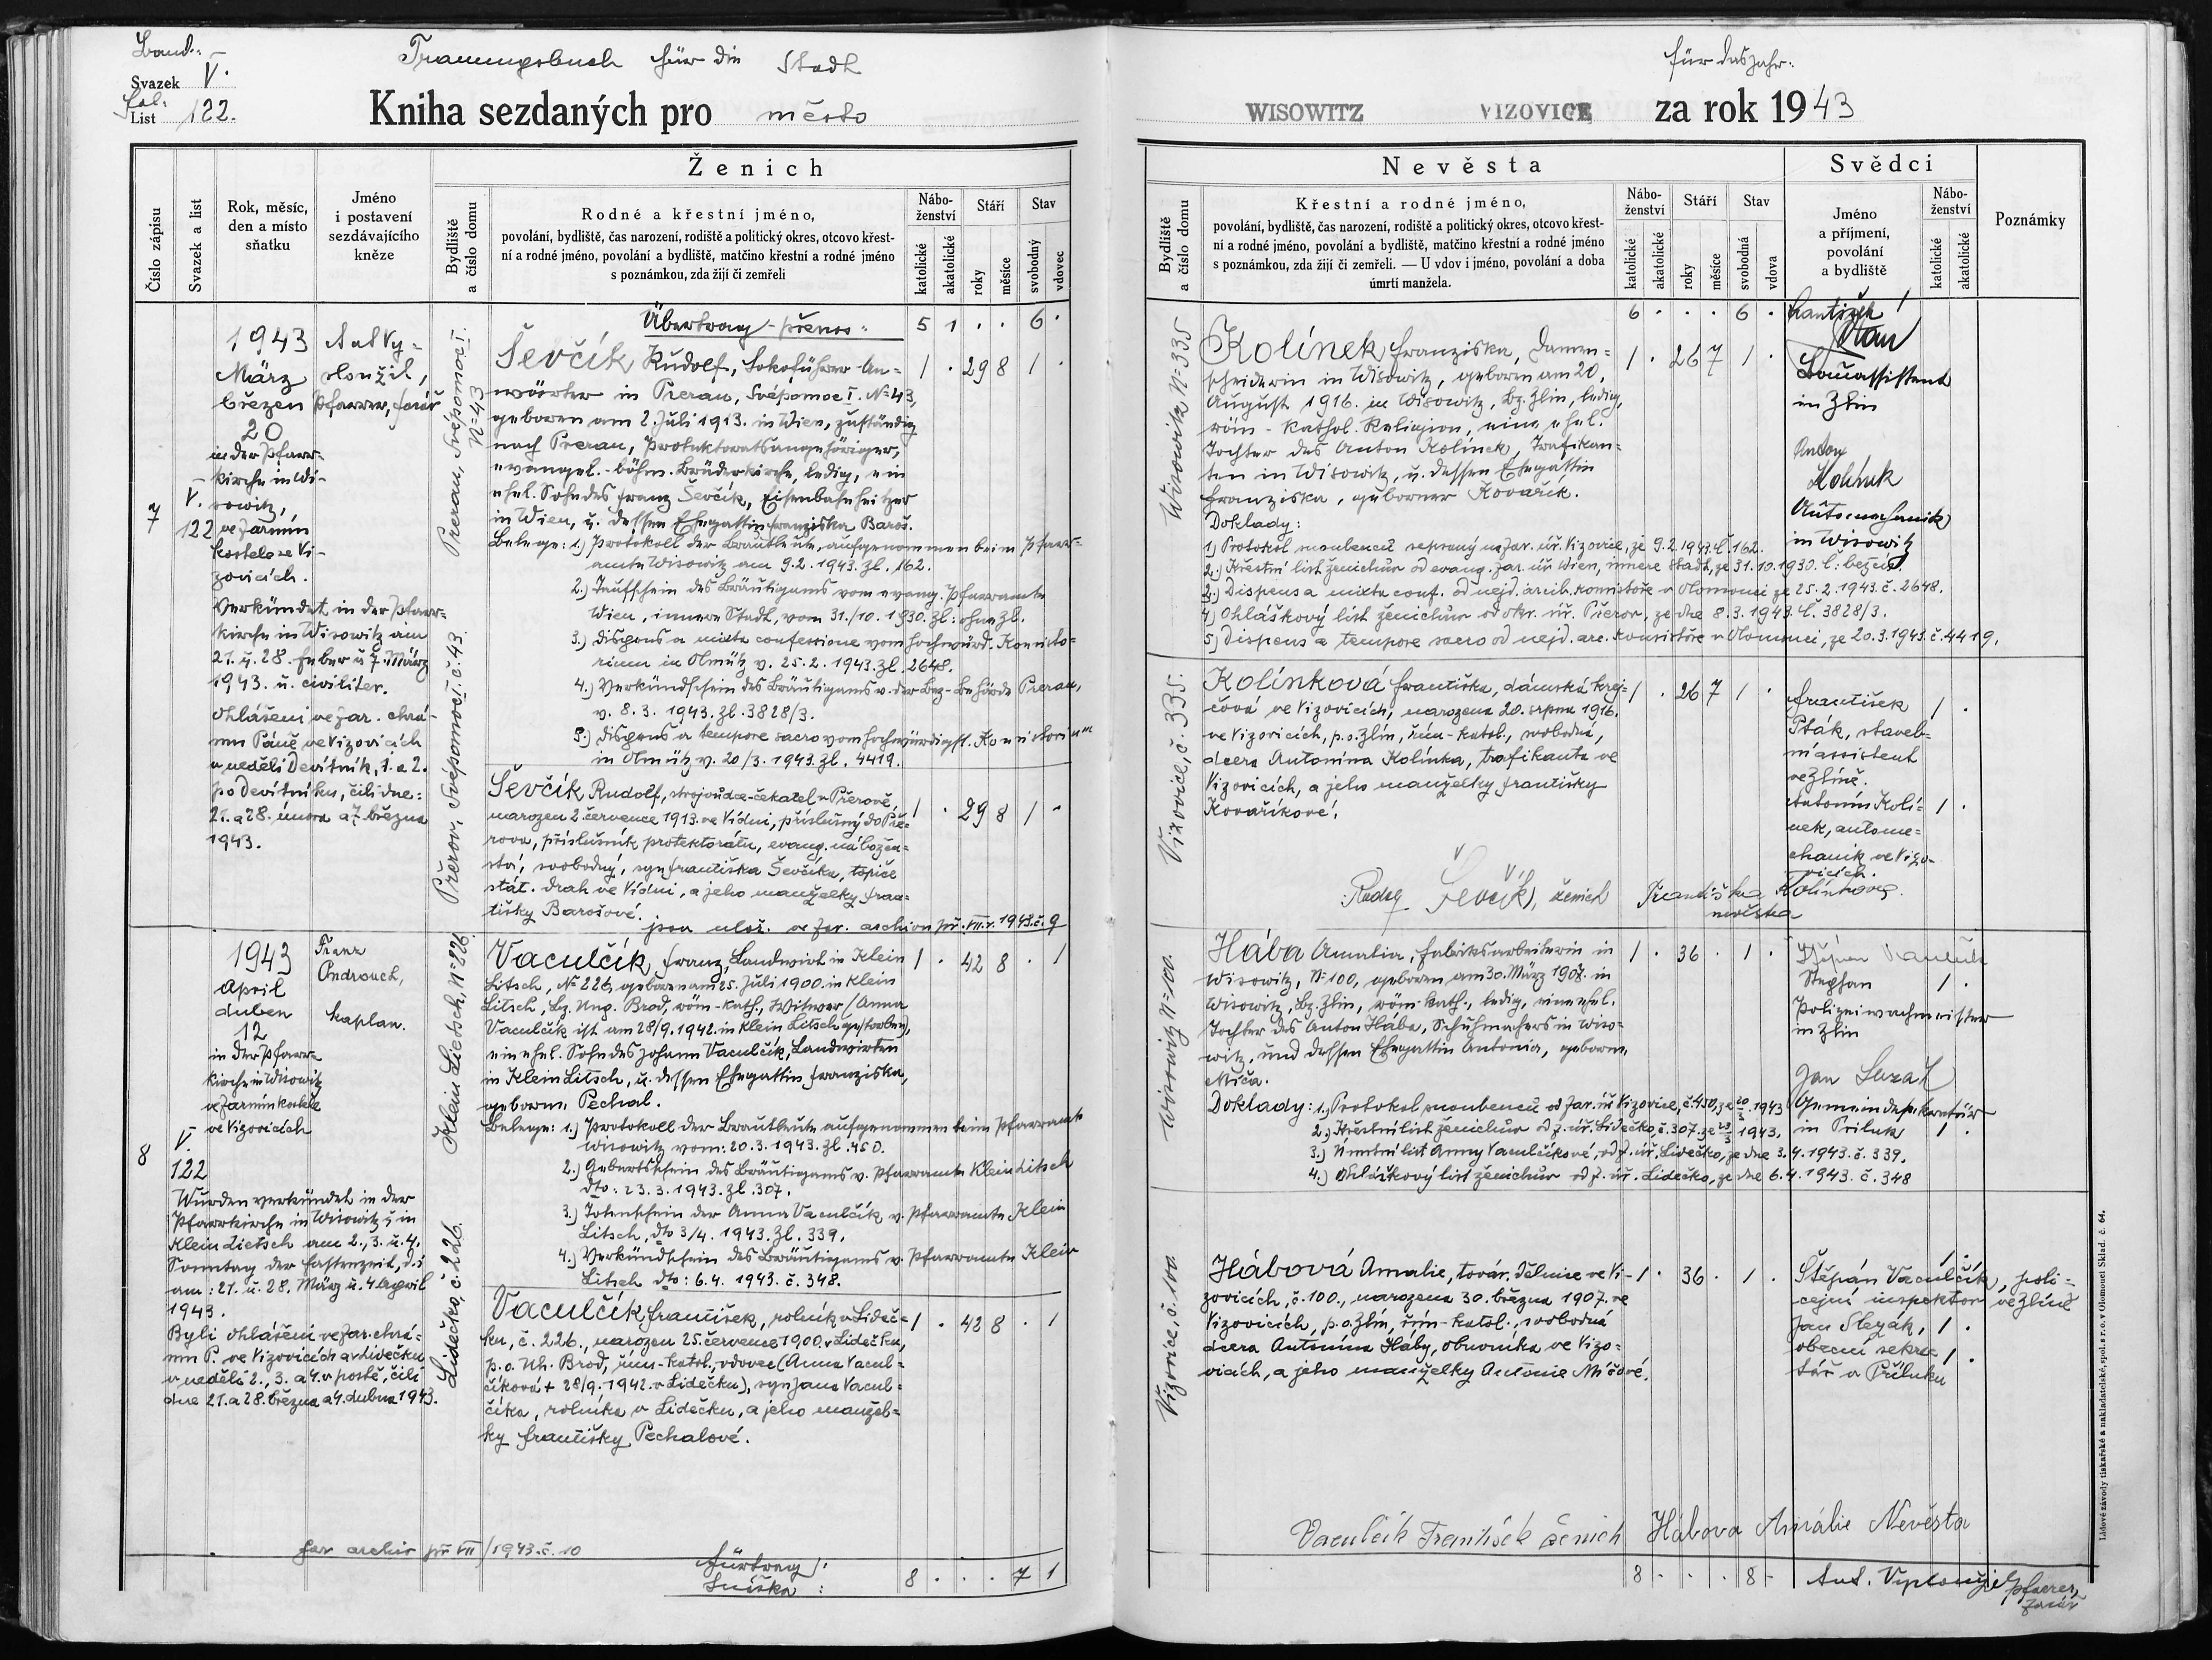 Band: V.
Svazek
Fol: 122.
List
Trauungsbuch für die Stadt
Kniha sezdaných pro město
für das Jahr:
WISOWITZ VIZOVICE za rok 1943
Číslo zápisu
Svazek a list
Rok, měsíc,
den a místo
sňatku
Jméno
i postavení
sezdávajícího
kněze
Ženich
Bydliště
a číslo domu
Rodné a křestní jméno,
povolání, bydliště, čas narození, rodiště a politický okres, otcovo křest-
ní a rodné jméno, povolání a bydliště, matčino křestní a rodné jméno
s poznámkou, zda žijí či zemřeli
Nábo-
ženství
katolické
akatolické
Stáří
roky
měsíce
Stav
svobodný
vdovec
Nevěsta
Bydliště
a číslo domu
Křestní a rodné jméno,
povolání, bydliště, čas narození, rodiště a politický okres, otcovo křest-
ní a rodné jméno, povolání a bydliště, matčino křestní a rodné jméno
s poznámkou, zda žijí či zemřeli. — U vdov i jméno, povolání a doba
úmrtí manžela.
Nábo-
ženství
katolické
akatolické
Stáří
roky
měsíce
Stav
svobodná
vdova
Svědci
Jméno
a příjmení,
povolání
a bydliště
Nábo-
ženství
katolické
akatolické
Poznámky
7
V.
122
1943
März
březen
20
in der Pfarr-
kirche in Wi-
sowitz,
ve farním
kostele ve Vi-
zovicích.
Verkündet in der Pfarr-
kirche in Wisowitz am
21. u. 28. Feber u 7. März
1943. u. civiliter.
Ohlášeni ve far. chrá-
mu Páně ve Vizovicích
v neděli Devítník, 1. a 2.
po Devítníku, čili dne:
21. a 28. února a 7. března
1943.
Ant Vy-
sloužil,
Pfarrer, farář
Prerau, Svépomoc I.
N=43
Přerov, Svépomoc I. č. 43.
Übertrag - přenos: 5 1 . . 6 .
Ševčík Rudolf, Lokoführer-An- 1 . 29 8 1 .
wärter in Prerau, Svépomoc I. N=43,
geboren am 2. Juli 1913. in Wien, zuständig
nach Prerau, Protektoratsangehöriger,
evangel.-böhm. Brüderkirche, ledig, ein
ehel. Sohn des Franz Ševčík, Eisenbahnheitzer
in Wien, u. dessen Ehegattin Franziska Baroš.
Belege: 1.) Protokoll der Brautleute, aufgenommen beim Pfarr-
amte Wisowitz am 9.2.1943. Zl. 162.
2.) Taufschein des Bräutigams vom evang. Pfarramte
Wien, innere Stadt, vom 31./10. 1930. Zl: ohne Zl.
3.) Dispens a mixta confessione vom hochwürd. Konsisto-
rium in Olmütz v. 25.2. 1943. Zl. 2648.
4.) Verkündschein des Bräutigams v. der Bez-Behörde Prerau,
v. 8. 3. 1943. Zl. 3828/3.
5.) Dispens a tempore sacro vom hochwürdigst. Konsistorium
in Olmütz v. 20/3. 1943. Zl. 4419.
Ševčík Rudolf, strojvůdce-čekatel v Přerově, 1 . 29 8 1 .
narozen 2. července 1913. ve Vídni, příslušný do Pře-
rova, příslušník protektorátu, evang. nábožen-
ství, svobodný, syn Františka Ševčíka, topiče
stát. drah ve Vídni, a jeho manželky Fran-
tišky Barošové.
jsou ulož. ve far. archivu př. VII. r. 1943. č. 9
Wisowitz N=335
Vizovice, č. 335.
6 . . . 6 .
Kolínek Franziska, Damen- 1 . 26 7 1 .
schneiderin in Wisowitz, geboren am 20.
August 1916. in Wisowitz, Bz. Zlin, ledig,
röm-kathol. Religion, eine ehel.
Tochter des Anton Kolínek, Trafikan-
ten in Wisowitz, u. dessen Ehegattin
Franziska, geborener Kovařík.
Doklady:
1.) Protokol snoubenců sepsaný na far. úř. Vizovice, ze 9.2.1943. č. 162.
2.) Křestní list ženichův od evang. far. úř. Wien, innere Stadt, ze 31.10.1930. č: bez čísl.
3.) Dispens a mixta conf. od nejd. arcib. konsistoře v Olomouci ze 25.2.1943. č. 2648.
4.) Ohláškový list ženichův od okr. úř. Přerov, ze dne 8.3.1943. č. 3828/3.
5.) Dispens a tempore sacro od nejd. arc. konsistoře v Olomouci, ze 20.3.1943. č. 4419.
František
Baůassistent
in Zlin
Anton
Kolínek
Automechanik
in Wisowitz
Kolínková Františka, dámská krej- 1 . 26 7 1 .
čová ve Vizovicích, narozena 20. srpna 1916.
ve Vizovicích, p.o. Zlín, řím-katol., svobodná,
dcera Antonína Kolínka, trafikanta ve
Vizovicích, a jeho manželky Františky
Kovaříkové.
František 1 .
Pták, staveb-
ní assistent
ve Zlíně.
Antonín Kolí- 1 .
nek, autome-
chanik ve Vizo-
vicích.
Rudolf Ševčík, ženich Františka Kolínková.
nevěsta
8
V.
122
1943
April
duben
12
in der Pfarr-
kirche in Wisowitz
ve farním kostele
ve Vizovicích
Wurden verkündet in der
Pfarrkirche in Wisowitz u. in
Klein Lietsch am 2., 3. u. 4.
Sonntag der Fastenzeit, d.i
am: 21. u. 28. März u. 4 April
1943.
Byli ohlášeni ve far. chrá-
mu P. ve Vizovicích a v Lidečku
v neděli 2., 3. a 4. v postě, čili
dne 21. a 28. března a 4. dubna 1943.
Franz
Ondrouch,
kaplan.
Klein Lietsch, N=226.
Lidečko, č. 226.
Vaculčík Franz, Landwirt in Klein 1 . 42 8 . 1
Litsch, No 226, geboren am 25. Juli 1900. in Klein
Litsch, Bz. Ung. Brod, röm-kath., Witwer (Anna
Vaculčík ist am 28/9. 1942. in Klein Litsch gestorben),
ein ehel. Sohn des Johann Vaculčík, Landwirten
in Klein Litsch, u. dessen Ehegattin Franziska,
geborene Pechal.
Belege: 1.) Protokoll der Brautleute aufgenommen beim Pfarramte
Wisowitz vom: 20.3.1943. Zl. 450.
2.) Geburtsschein des Bräutigams v. Pfarramte Klein Litsch
dto: 23.3.1943. Zl. 307.
3.) Totenschein der Anna Vaculčík v. Pfarramte Klein
Litsch, dto 3/4. 1943. Zl. 339.
4.) Verkündschein des Bräutigams v. Pfarramte Klein
Litsch dto: 6.4. 1943. č. 348.
Vaculčík František, rolník v Lideč- 1 . 42 8 . 1
ku, č. 226., narozen 25. července 1900. v Lidečku,
p.o. Uh. Brod, řím-katol., vdovec (Anna Vacul-
číková + 28/9. 1942. v Lidečku), syn Jana Vacul-
číka, rolníka v Lidečku, a jeho manžel-
ky Františky Pechalové.
far archiv př VII/1943. č. 10
Fürtrag:
Snůška: 8 . . . 7 1
Wisowitz N=100.
Vizovice, č. 100
Hába Amalia, Fabriksarbeiterin in 1 . 36 . 1 .
Wisowitz, N=100, geboren am 30. März 1907. in
Wisowitz, Bz. Zlin, röm-kath., ledig, eine ehel.
Tochter des Anton Hába, Schuhmachers in Wiso-
witz, und dessen Ehegattin Antonia, geborene
Miča.
Doklady: 1.) Protokol snoubenců od far. úř Vizovice, č. 450, ze 20/3. 1943
2.) Křestní list ženichův od f. úř. Lidečko, č. 307. ze 23/3 1943.
3.) Úmrtní list Anny Vaculčíkové, od f. úř. Lidečko, ze dne 3.4.1943. č. 339.
4.) Ohláškový list ženichův od f. úř. Lidečko, ze dne 6.4.1943. č. 348
Štěpán Vaculčík
Stephan 1 .
Polizeiwachmeister
in Zlin
Jan
Gemeindesekretär
in Priluk 1 .
Hábová Amalie, továr. dělnice ve Vi- 1 . 36 . 1 .
zovicích, č. 100., narozena 30. března 1907. ve
Vizovicích, p.o. Zlín, řím-katol., svobodná
dcera Antonína Háby, obuvníka ve Vizo-
vicích, a jeho manželky Antonie Mičové.
Štěpán Vaculčík, poli-
cejní inspektor ve Zlíně
Jan Slezák, 1 .
obecní sekre-
tář v Příluku 1 .
Vaculčík František ženich Hábova Amálie Nevěsta
8 . . . 8 - Ant. Vysloužil, Pfarrer,
farář
Lidové závody tiskařské a nakladatelské, spol. s r. o. v Olomouci Sklad. č. 64.